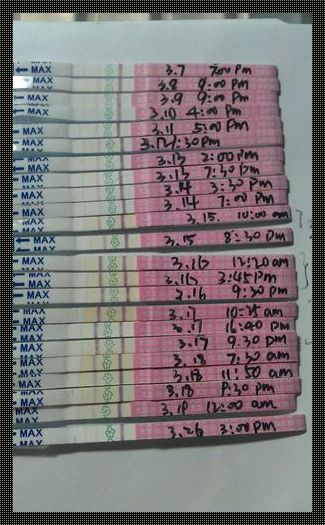 MAX 3.7 7:00 Pm
MAX 3.8 9:00 Pm
MAX 3.9 9:00 Pm
MAX 3.10 4:00 Pm
MAX 3.11 5:00 Pm
MAX 7:30 Pm
MAX 3.13 2:00 Pm
MAX 3.13 7:30 Pm
MAX 3.14 3:30 Pm
MAX 3.14 7:00 Pm
MAX 3.15 10:00 am
MAX 3.15 8:30 Pm
MAX 3.16 12:20 am
MAX 3.16 3:45 Pm
MAX 3.16 9:30 Pm
MAX 3.17 10:25 am
MAX 3.17
MAX 3.17 9:30 Pm
MAX 3.18 7:30 am
MAX 3.18 11:50 am
MAX 3.18 9:30 Pm
MAX 3.19 12:00 am
MAX 3.26 3:00 Pm